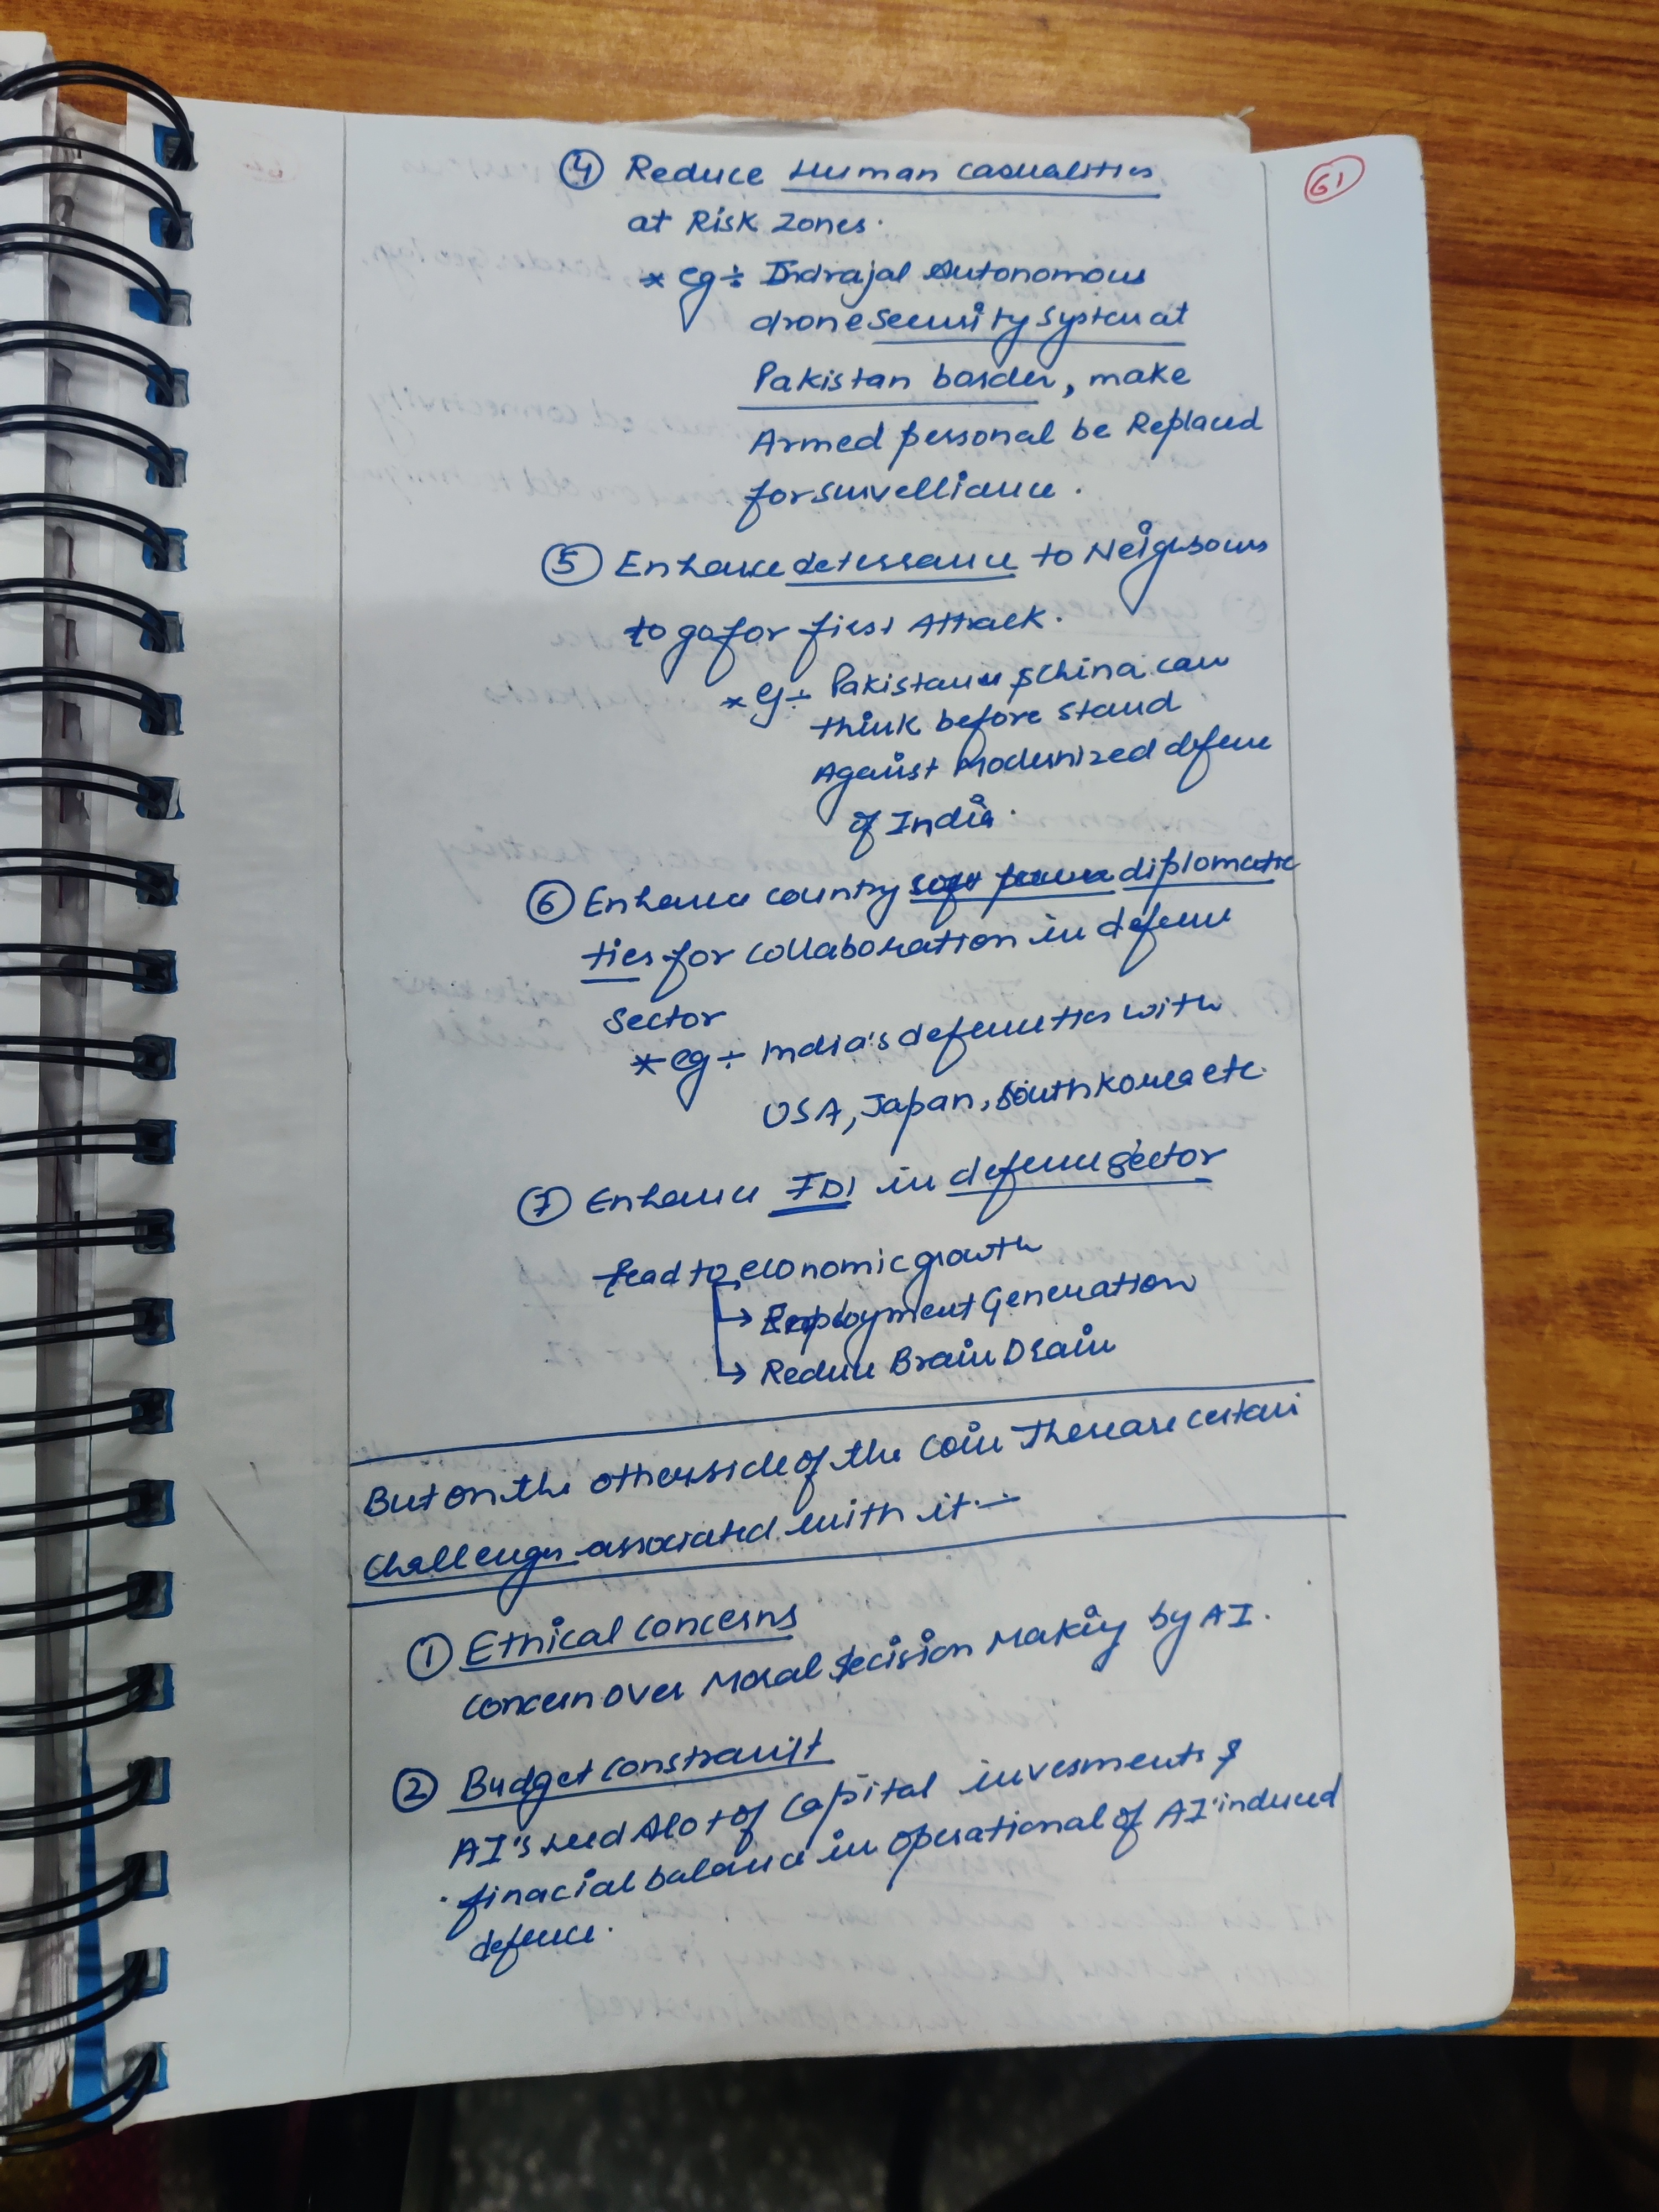 61
④ Reduce Human casualities
at Risk zones.
* eg ÷ Indrajal Autonomous
drone security system at
Pakistan border, make
Armed personal be Replaced
for survelliance.
⑤ Enhance deterrance to Neighbours
to go for first Attack.
* eg ÷ Pakistan & China can
think before stand
Against Modernized defence
of India.
⑥ Enhance country soft power diplomatic
ties for collaboration in defence
sector
* eg ÷ India's defence ties with
USA, Japan, South Korea etc.
⑦ Enhance FDI in defence sector
lead to economic growth
→ Employment Generation
→ Reduce Brain Drain
But on the otherside of the coin There are certain
challenges associated with it —
① Ethical concerns
concern over Moral decision Making by AI.
② Budget constraint
AI's need Alot of capital invesments &
finacial balance in operational of AI induced
defence.